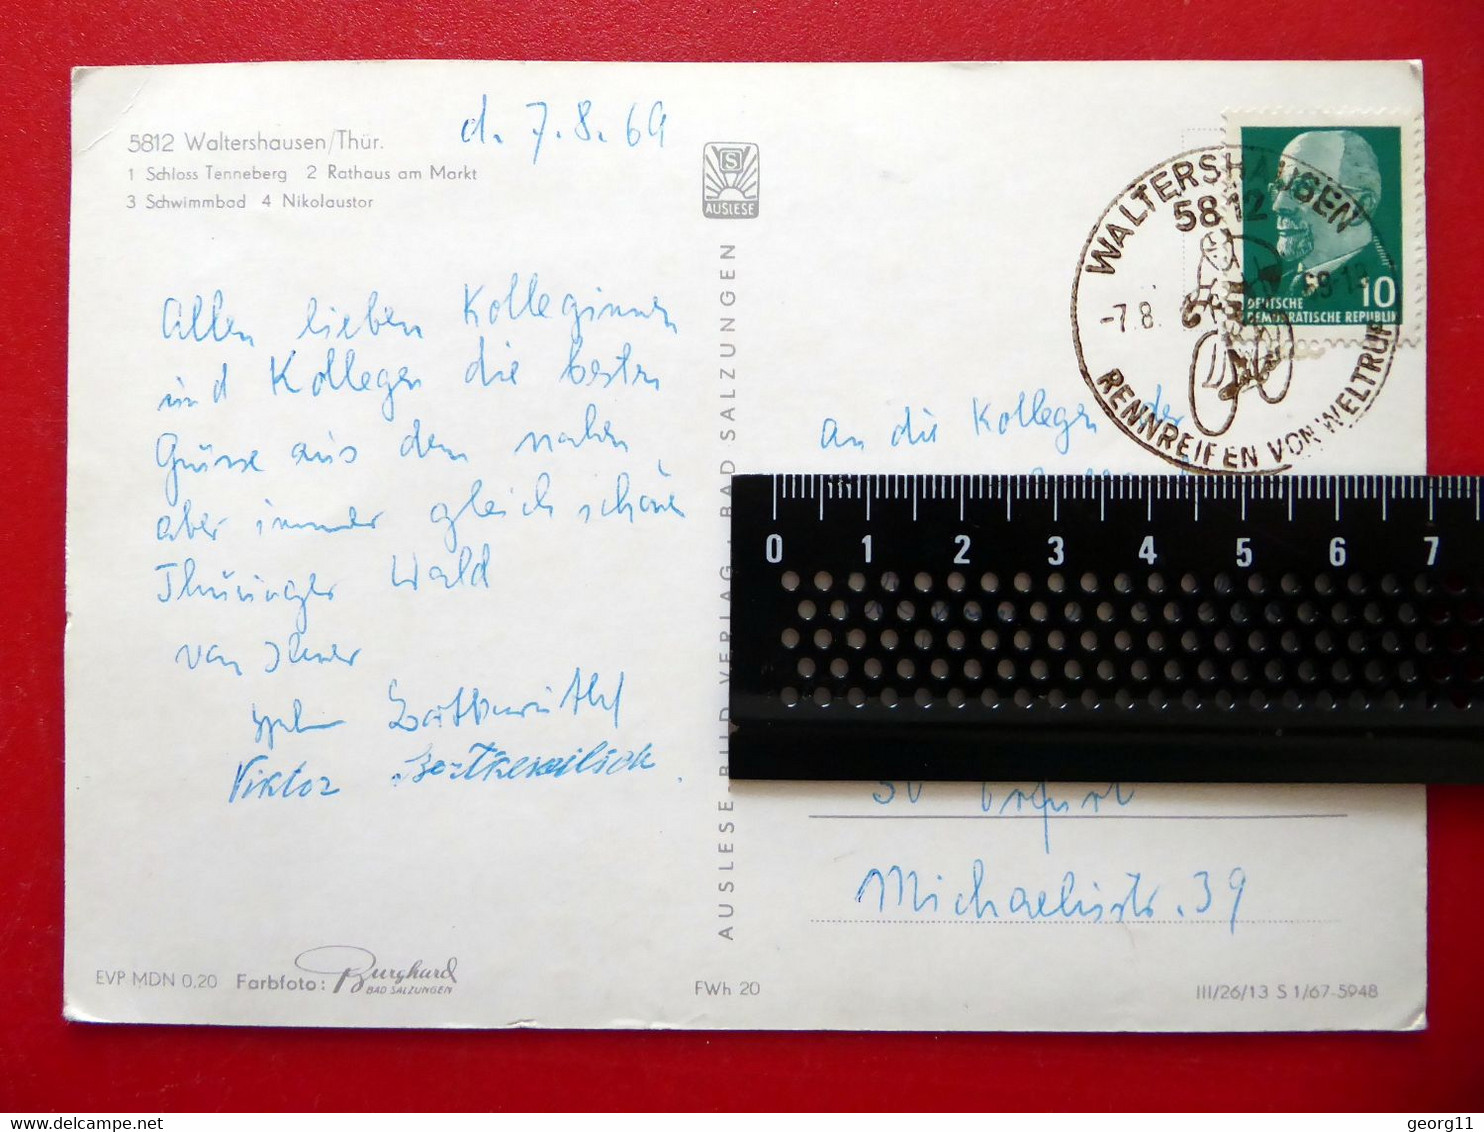 5812 Waltershausen/Thür.
1 Schloss Tenneberg 2 Rathaus am Markt
3 Schwimmbad 4 Nikolaustor
d. 7.8.69
Allen lieben Kolleginnen
und Kollegen die besten
Grüsse aus dem nahen
aber immer gleich schönen
Thüringer Wald
von Ihrer
Viktor
EVP MDN 0.20 Farbfoto: Burghard
BAD SALZUNGEN
S
AUSLESE
AUSLESE-BILD-VERLAG · BAD SALZUNGEN
FWh 20
WALTERSHAUSEN
5812
-7.8. 69-13
RENNREIFEN VON WELTRUF
10
DEUTSCHE
DEMOKRATISCHE REPUBLIK
An die Kollegen der
0 1 2 3 4 5 6 7
50 Erfurt
Michaelisstr. 39
III/26/13 S 1/67-5948
delcampe.net
georg11